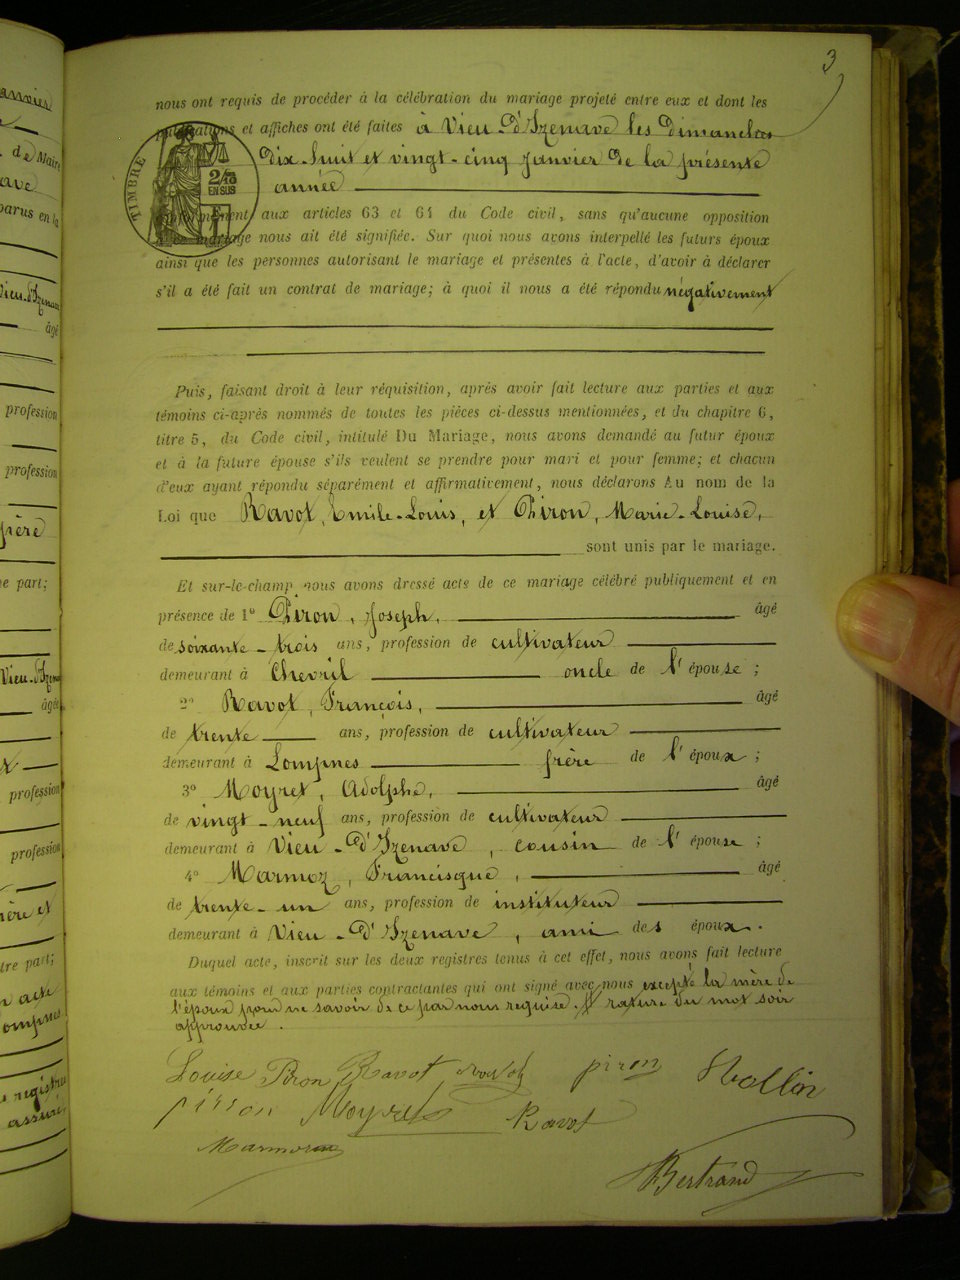 3
nous ont requis de procéder à la célébration du mariage projeté entre eux et dont les
et affiches ont été faites à Vieu-d'Izenave les dimanches
dix-huit et vingt-cinq janvier de la présente
année
TIMBRE
EN SUS
aux articles 63 et 64 du Code civil, sans qu'aucune opposition
mariage nous ait été signifiée. Sur quoi nous avons interpellé les futurs époux
ainsi que les personnes autorisant le mariage et présentes à l'acte, d'avoir à déclarer
s'il a été fait un contrat de mariage; à quoi il nous a été répondu négativement
Puis, faisant droit à leur réquisition, après avoir fait lecture aux parties et aux
témoins ci-après nommés de toutes les pièces ci-dessus mentionnées, et du chapitre 6,
titre 5, du Code civil, intitulé Du Mariage, nous avons demandé au futur époux
et à la future épouse s'ils veulent se prendre pour mari et pour femme; et chacun
d'eux ayant répondu séparément et affirmativement, nous déclarons Au nom de la
Loi que Ravot, Emile-Louis, et Piron, Marie-Louise,
sont unis par le mariage.
Et sur-le-champ nous avons dressé acte de ce mariage célébré publiquement et en
présence de 1° Piron, Joseph, âgé
de soixante-trois ans, profession de cultivateur
demeurant à Chevril oncle de l'épouse;
2° Ravot, François, âgé
de trente ans, profession de cultivateur
demeurant à Lompnes frère de l'époux;
3° Moyret, Adolphe, âgé
de vingt-neuf ans, profession de cultivateur
demeurant à Vieu-d'Izenave, cousin de l'épouse;
4° Marmoz, Francisque, âgé
de trente-un ans, profession de instituteur
demeurant à Vieu-d'Izenave, ami des époux.
Duquel acte, inscrit sur les deux registres tenus à cet effet, nous avons fait lecture
aux témoins et aux parties contractantes qui ont signé avec nous excepté la mère de
l'époux pour ne savoir de ce par nous requise. rature du mot soir
approuvée.
Louise Piron Ravot Ravot piron Hollin
piron Moyret Ravot
Marmoz
Bertrand